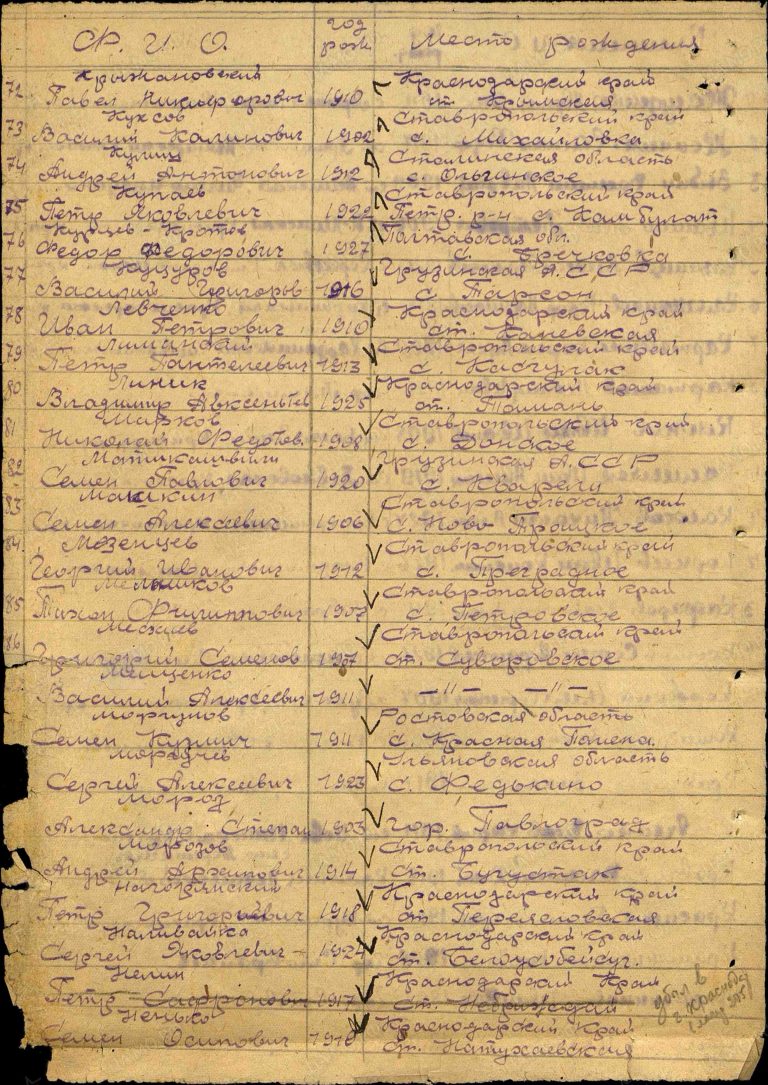 Ф. И. О. год рожд. Место рождения
72 Крыжановский Краснодарский край
Павел Никифорович 1910 ст. Крымская
73 Куксов Ставропольский край
Василий Калинович 1902 с. Михайловка
74 Кулиш Сталинская область
Андрей Антонович 1912 с. Ольгинское
75 Купаев Ставропольский край
Петр Яковлевич 1922 Петр. р-н с. Камбулат
76 Курцев-Кротов Полтавская обл.
Федор Федорович 1927 с. Бречковка
77 Куцуров Грузинская А.С.С.Р
Василий Григорьв 1916 с. Тарсон
78 Левченко Краснодарский край
Иван Петрович 1910 ст. Каневская
79 Лиманский Ставропольский край
Петр Пантелеевич 1913 с.
80 Линик Краснодарский край
Владимир Авксентьев 1925 ст. Тамань
81 Марков Ставропольский край
Николай Федотов. 1908 с. Донское
82 Матикашвили Грузинская А.С.С.Р
Семен Павлович 1920 с. Кварели
83 Машкин Ставропольский край
Семен Алексеевич 1906 с. Ново Троицкое
84. Мезенцев Ставропольский край
Георгий Иванович 1912 с. Преградное
85 Мельников Ставропольский край
Тихон Филиппович 1907 с. Петровское
86 Ставропольский край
Григорий Семенов 1907 ст. Суворовское
Мищенко
Василий Алексеевич 1911 —"— —"—
Моргунов Ростовская область
Семен Кузмич 1911 с. Красная Поляна.
Мордчев Ульяновская область
Сергей Алексеевич 1923 с. Федькино
Морад
Александр Степан 1903 гор. Павлоград
Морозов Ставропольский край
Андрей 1914 ст.
Нагорянский Краснодарский край
Петр Григорьевич 1918 ст. Переясловская
Наливайка Краснодарский край
Сергей Яковлевич 1924 ст.
Нелин Краснодарский Край
Петр Сафронович 1917 ст.
Ненько Краснодарский Край
Семен Осипович ст. Натухаевская
убыл в
г. Краснода